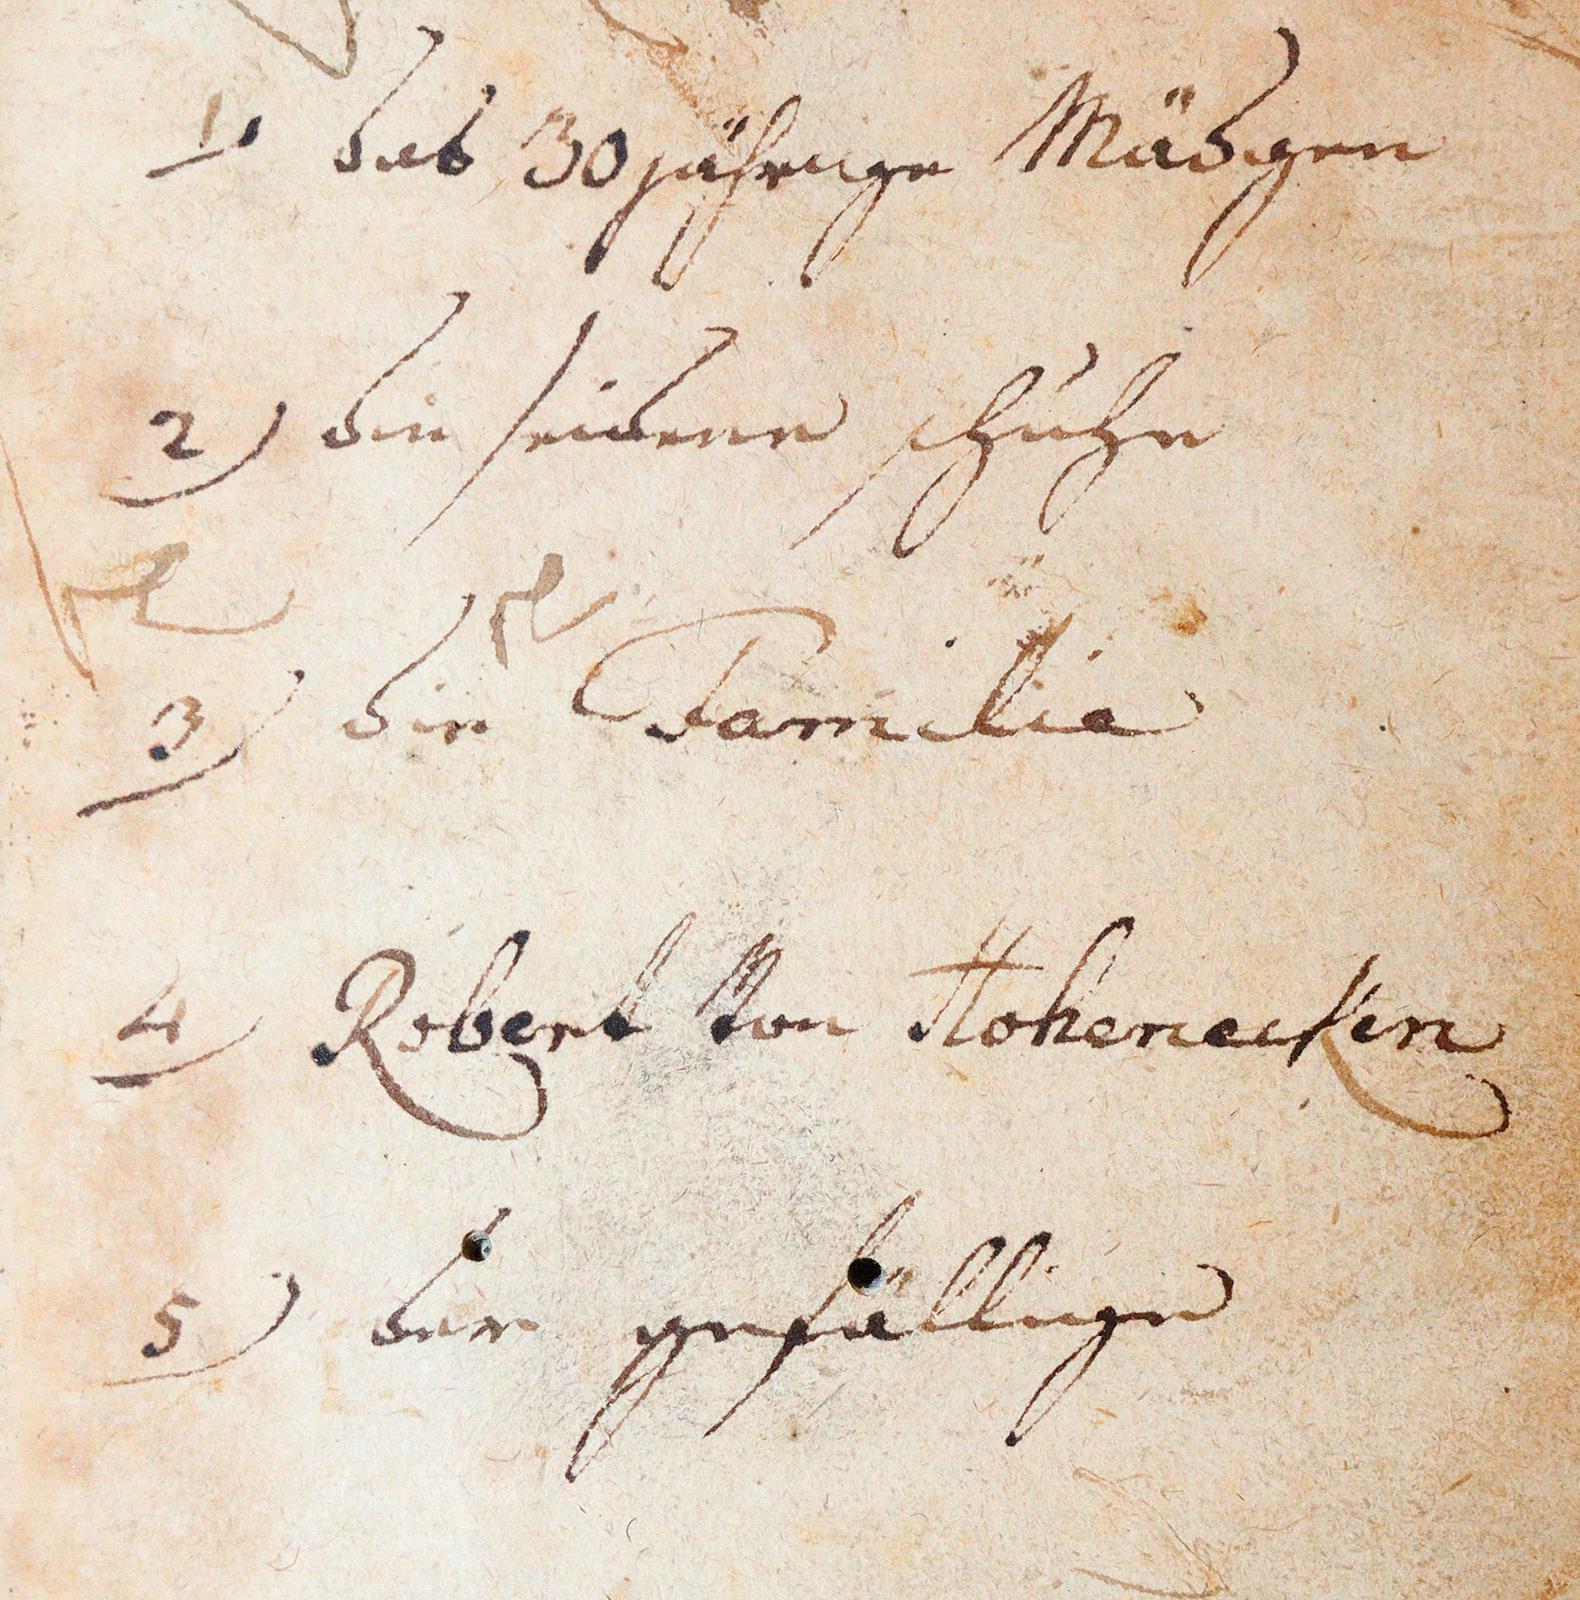 1) das 30jährige Mädgen
2) die seidene schuhe
3) die Familie
4) Robert von Hohenecken
5) der gefällige